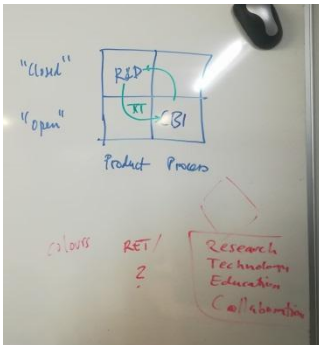 "Closed"
R&D
"Open"
KT
CBI
Product Process
colours RET/
?
Research
Technology
Education
Collaboration